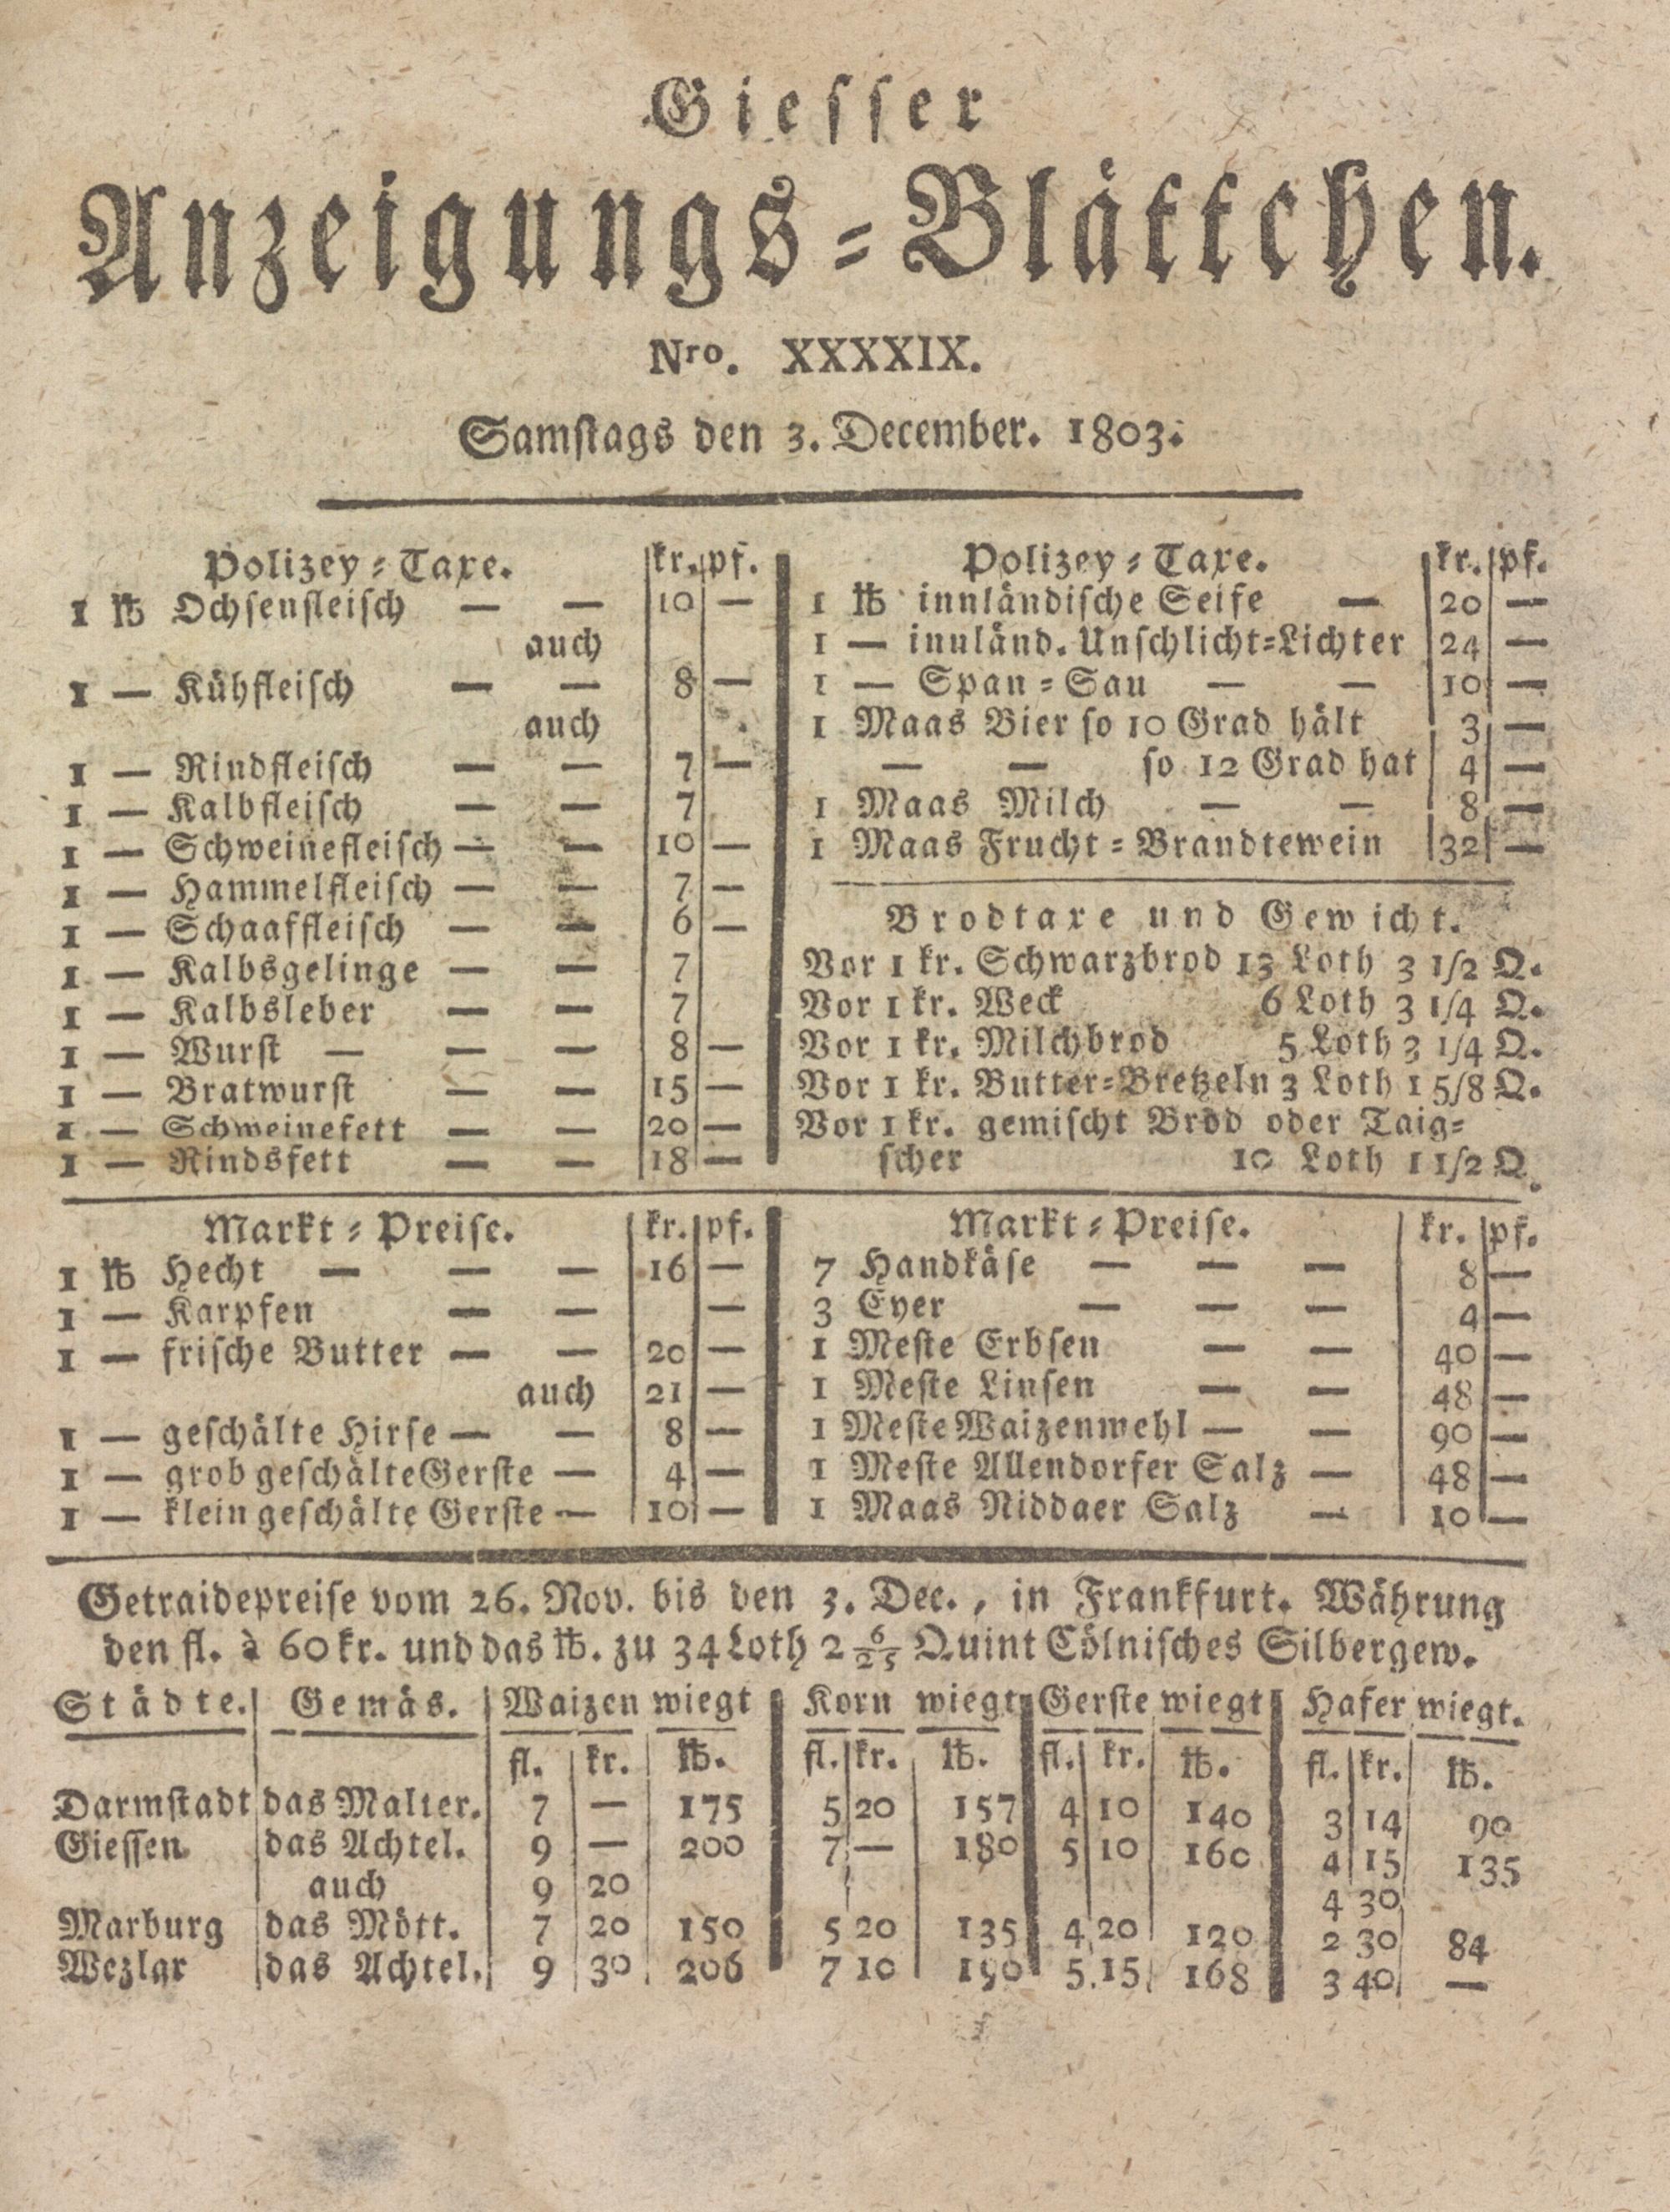 Giesser
Anzeigungs-Blättchen.
Nro. XXXXIX.
Samstags den 3. December. 1803.
Polizey-Taxe. kr. pf.
1 ℔ Ochsenfleisch — — 10 —
auch
1 — Kühfleisch — — 8 —
auch
1 — Rindfleisch — — 7 —
1 — Kalbfleisch — — 7
1 — Schweinefleisch — — 10 —
1 — Hammelfleisch — — 7 —
1 — Schaaffleisch — — 6 —
1 — Kalbsgelinge — — 7
1 — Kalbsleber — — 7
1 — Wurst — — — 8 —
1 — Bratwurst — — 15 —
1 — Schweinefett — — 20 —
1 — Rindsfett — — 18 —
Polizey-Taxe. kr. pf.
1 ℔ innländische Seife — 20 —
1 — innländ. Unschlicht-Lichter 24 —
1 — Span-Sau — — 10 —
1 Maas Bier so 10 Grad hält 3 —
— — so 12 Grad hat 4 —
1 Maas Milch — — 8 —
1 Maas Frucht-Brandtewein 32 —
Brodtaxe und Gewicht.
Vor 1 kr. Schwarzbrod 13 Loth 3 1/2 Q.
Vor 1 kr. Weck 6 Loth 3 1/4 Q.
Vor 1 kr. Milchbrod 5 Loth 3 1/4 Q.
Vor 1 kr. Butter-Bretzeln 3 Loth 1 5/8 Q.
Vor 1 kr. gemischt Brod oder Taig-
scher 10 Loth 1 1/2 Q.
Markt-Preise. kr. pf.
1 ℔ Hecht — — — 16 —
1 — Karpfen — — —
1 — frische Butter — — 20 —
auch 21 —
1 — geschälte Hirse — — 8 —
1 — grob geschälte Gerste — 4 —
1 — klein geschälte Gerste — 10 —
Markt-Preise. kr. pf.
7 Handkäse — — — 8 —
3 Eyer — — — 4 —
1 Meste Erbsen — — 40 —
1 Meste Linsen — — 48 —
1 Meste Waizenmehl — — 90 —
1 Meste Allendorfer Salz — 48 —
1 Maas Niddaer Salz — 10 —
Getraidepreise vom 26. Nov. bis den 3. Dec., in Frankfurt. Währung
den fl. à 60 kr. und das ℔. zu 34 Loth 2 6/25 Quint Cölnisches Silbergew.
Städte. Gemäs. Waizen wiegt Korn wiegt Gerste wiegt Hafer wiegt.
fl. kr. ℔. fl. kr. ℔. fl. kr. ℔. fl. kr. ℔.
Darmstadt das Malter. 7 — 175 5 20 157 4 10 140 3 14 90
Giessen das Achtel. 9 — 200 7 — 180 5 10 160 4 15 135
auch 9 20 4 30
Marburg das Mött. 7 20 150 5 20 135 4 20 120 2 30 84
Wezlar das Achtel. 9 30 206 7 10 190 5 15 168 3 40 —